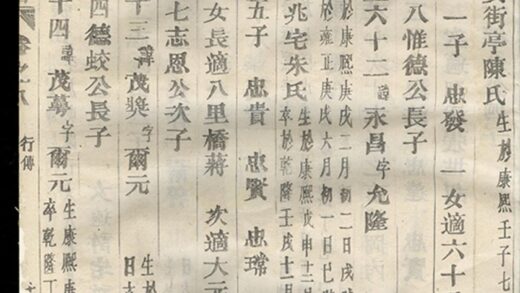 街亭陳氏 生於康熙壬子七
一子 忠發 一女適六十
八惟德公長子
六十二 諱 永昌 字 允隆
於康熙庚戌二月初二日戌時
於雍正庚戌六月初一日巳
兆宅朱氏 生於康熙丙申十二月
卒於乾隆壬戌十一月
五子 忠貴 忠賢 忠瑺
女長適八里橋蔣 次適大元
七志恩公次子
十三 諱 茂獎 字 爾元
生於
日
四德蛟公長子
十四 諱 茂 字 爾元 生康熙庚
卒乾隆丁
卷之八 行傳